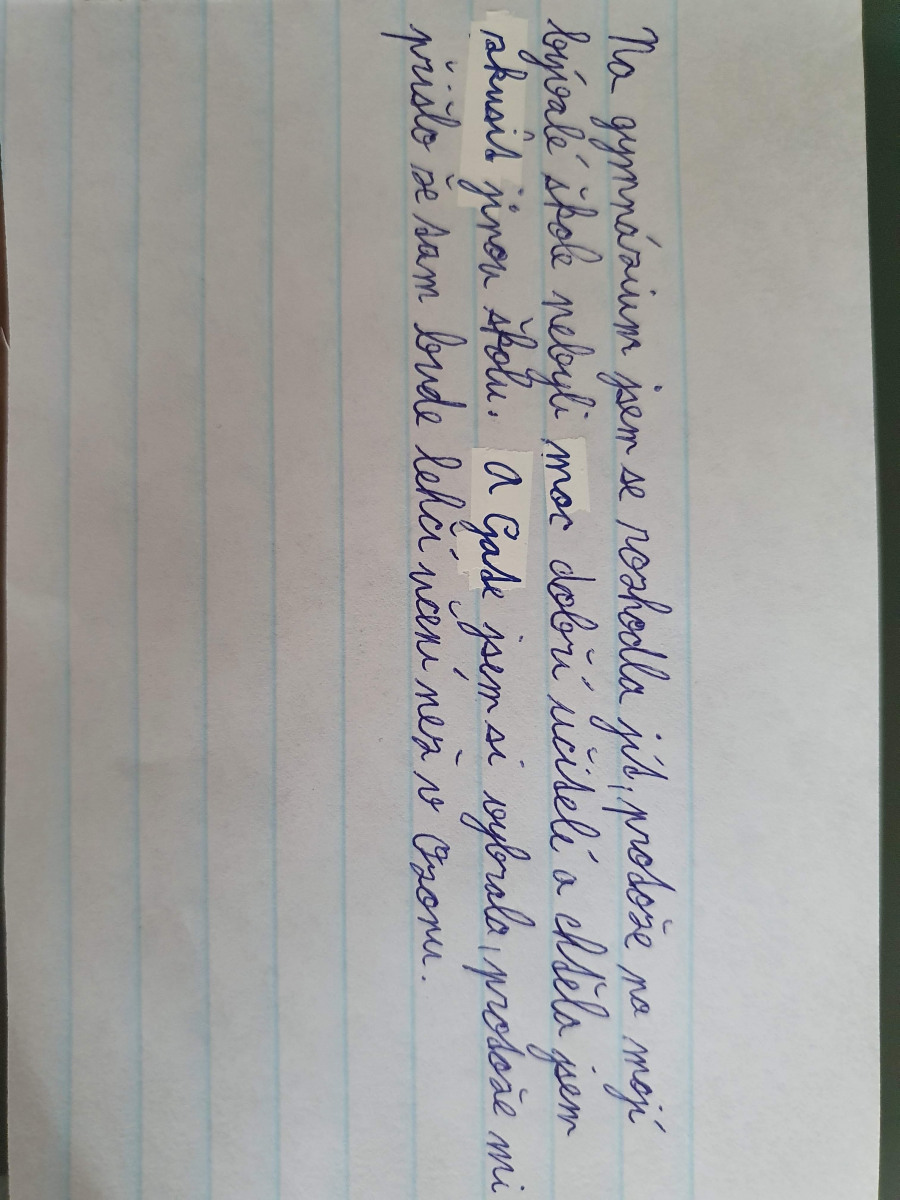 Na gymnázium jsem se rozhodla jít, protože na mojí
bývalé škole nebyli moc dobří učitelé a chtěla jsem
zkusit jinou školu. A Gate jsem si vybrala, protože mi
přišlo že tam bude lehčí učení než v Ozonu.